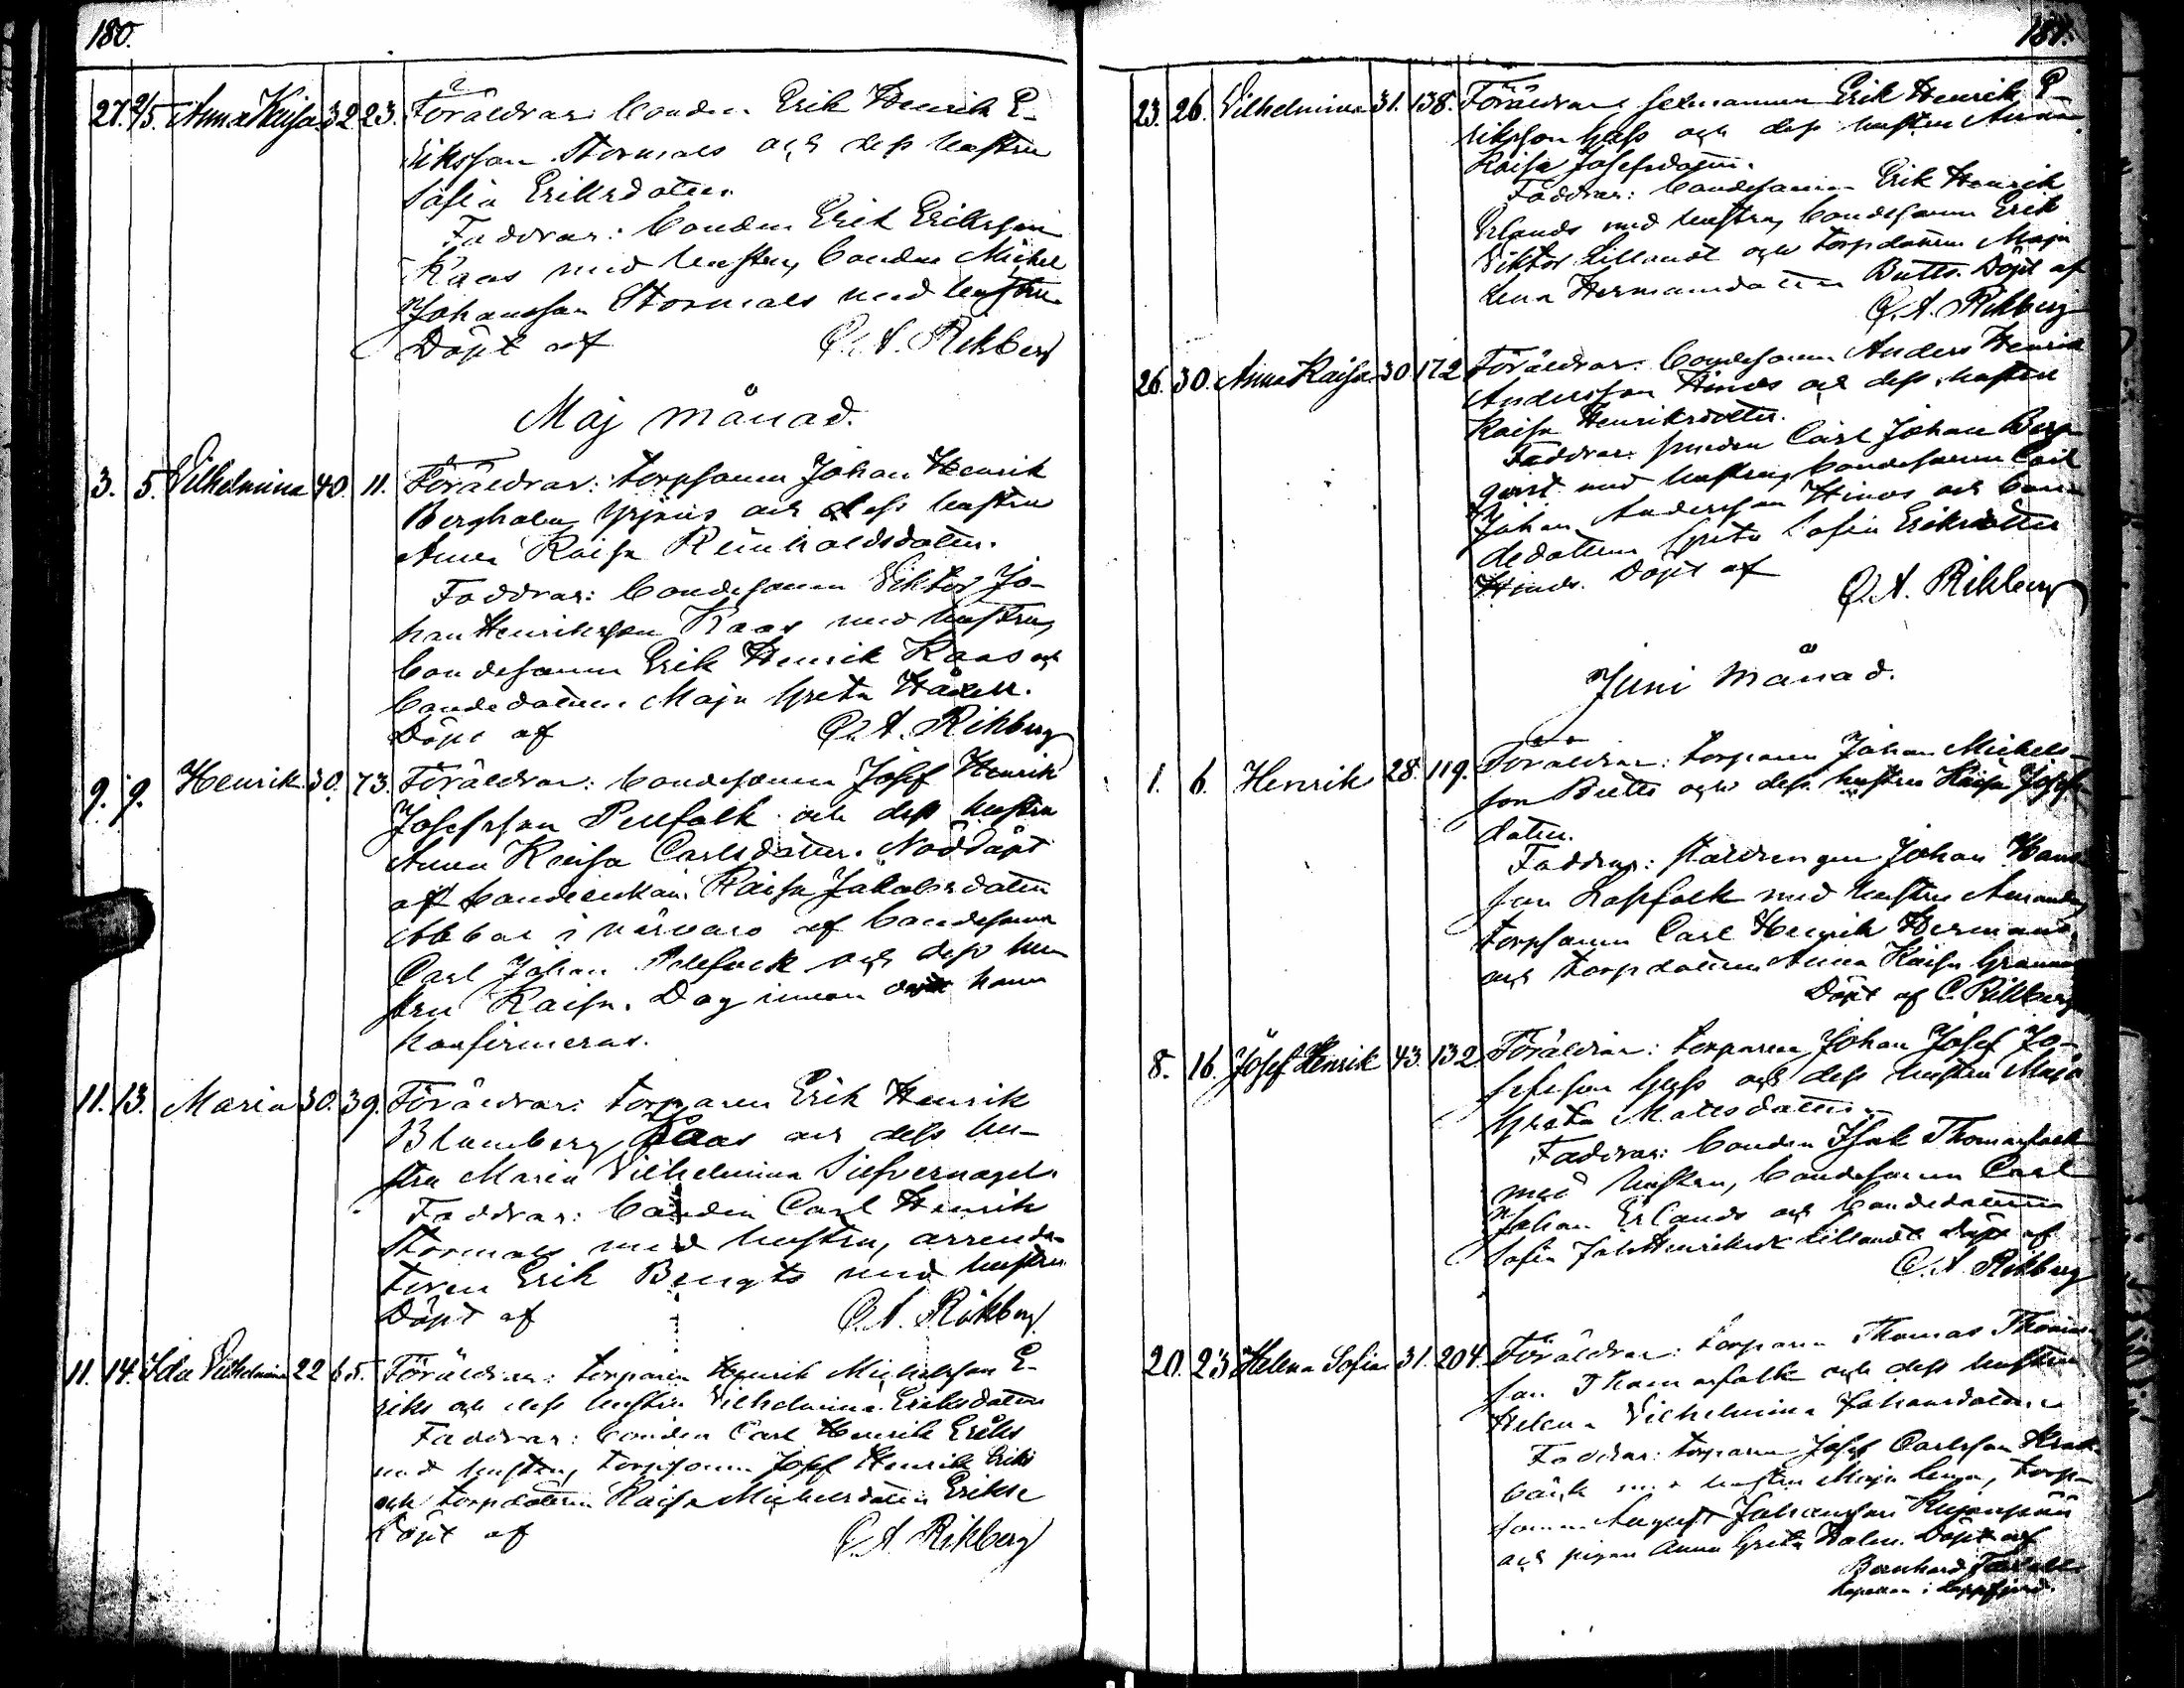 180.
27. 2/5. Anna Kaisa. 32. 23. Föräldrar: bonden Erik Henrik E-
riksson Stormåls och dess hustru
Sofia Eriksdotter.
Faddrar: bonden Erik Eriksson
Kaas med hustru, bonden Michel
Johansson Stormåls med hustru
Döpt af C. A. Rikberg
Maj månad.
3. 5. Vilhelmina 40. 11. Föräldrar: torpsonen Johan Henrik
Bergholm och dess hustru
Anna Kaisa Reinholdsdotter.
Faddrar: bondesonen Viktor Jo-
han Henriksson Kaas med hustru,
bondesonen Erik Henrik Kaas och
bondedottern Maja Greta
Döpt af C. A. Rikberg
9. 9. Henrik. 30. 73. Föräldrar: bondesonen Josef Henrik
Josefsson Pellfolk och dess hustru
Anna Kaisa Carlsdotter. Nöddöpt
af bondeenkan Kaisa Jakobsdotter
Abbas i närvaro af bondesonen
Carl Johan Pellfolk och dess hu-
stru Kaisa. Dog innan hann
konfirmeras.
11. 13. Maria 30. 39. Föräldrar: torparen Erik Henrik
Blomberg Kaas och dess hu-
stru Maria Vilhelmina Silfvernagel.
Faddrar: bonden Carl Henrik
Stormåls med hustru, arrenda-
toren Erik Bengts med hustru
Döpt af C. A. Rikberg
11. 14. Ida Vilhelmina 22 65. Föräldrar: torparen Henrik Michelsson E-
riks och dess hustru Vilhelmina Eriksdotter
Faddrar: bonden Carl Henrik Eriks
med hustru, torpsonen Josef Henrik Eriks
och torpdottern Kaisa Michelsdotter Eriks
Döpt af C. A. Rikberg
181.
23. 26. Vilhelmina 31. 138. Föräldrar: Erik Henrik E-
riksson och dess hustru Anna
Kaisa Josefsdotter.
Faddrar: bondesonen Erik Henrik
Erlands med hustru, bondesonen Erik
Viktor Lillandt och torpdottern Maja
Lena Hermansdotter Butts. Döpt af
C. A. Rikberg
26. 30. Anna Kaisa 30. 172 Föräldrar: bondesonen Anders Henrik
Andersson Hinds och dess hustru
Kaisa Henriksdotter.
Faddrar: smeden Carl Johan Berg-
qvist med hustru, bondesonen Carl
Johan Andersson Hinds och bon-
dedottern Greta Sofia Eriksdotter
Hinds. Döpt af C. A. Rikberg
Juni månad.
1. 6. Henrik 28. 119. Föräldrar: torparen Johan Michels-
son Butts och dess hustru Kaisa Josefs-
dotter.
Faddrar: Johan Hans-
son Lassfolk med hustru Amanda,
torpsonen Carl Henrik Hermans
och torpdottern Anna Kaisa
Döpt af C. Rikberg
8. 16. Josef Henrik 43. 132. Föräldrar: torparen Johan Josef Jo-
sefsson och dess hustru Maja
Greta Mattsdotter.
Faddrar: bonden Isak Thomasfolk
med hustru, bondesonen Carl
Johan Erlands och bondedottern
Sofia Lillandt Döpt af
C. A. Rikberg
20. 23 Helena Sofia 31. 204. Föräldrar: torparen Thomas Thomas-
son Thomasfolk och dess hustru
Helena Vilhelmina Johansdotter.
Faddrar: torparen Josef Carlsson
bäck med hustru Maja Lena, torp-
sonen August Johansson
och pigan Anna Greta Holm. Döpt af
Bernhard
kapellan i Lappfjerd.